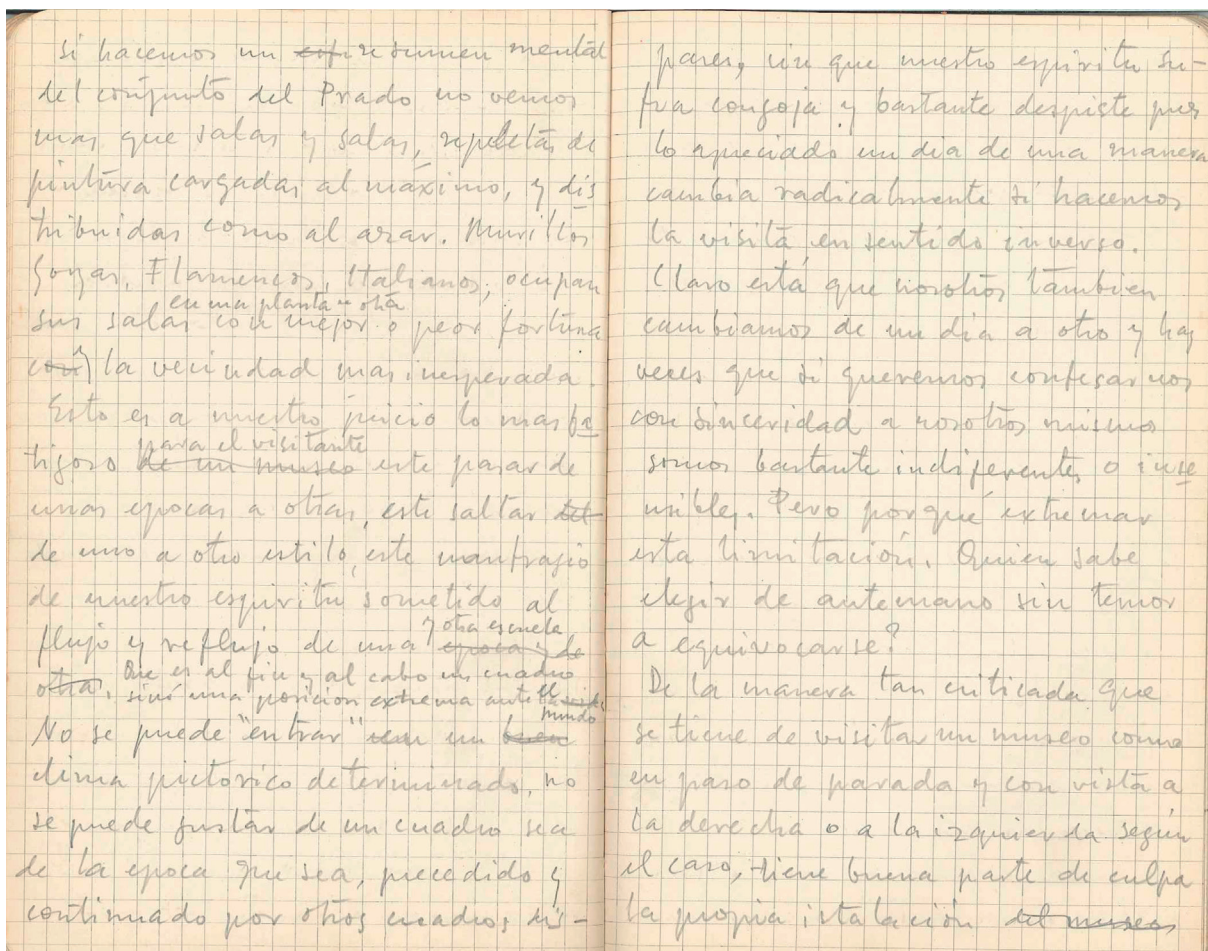 si hacemos un resumen mental
del conjunto del Prado no vemos
mas que salas y salas, repletas de
pintura cargadas al máximo, y dis
tribuidas como al azar. Murillos
Goyas, Flamencos, Italianos, ocupan
en una planta u otra
sus salas con mejor o peor fortuna
con la vecindad mas inesperada.
Esto es a nuestro juicio lo mas fa
para el visitante
tigoso de un museo este pasar de
unas epocas a otras, este saltar del
de uno a otro estilo, este naufragio
de nuestro espiritu sometido al
y otra escuela
flujo y reflujo de una epoca y de
Que es al fin y al cabo un cuadro
otra. sinó una posicion extrema ante el
mundo
No se puede "entrar" en un buen
clima pictorico determinado, no
se puede gustar de un cuadro sea
de la epoca que sea, precedido y
continuado por otros cuadros dis-
pares, sin que nuestro espiritu su-
fra congoja y bastante despiste pues
lo apreciado un dia de una manera
cambia radicalmente si hacemos
la visita en sentido inverso.
Claro está que nosotros tambien
cambiamos de un dia a otro y hay
veces que si queremos confesarnos
con sinceridad a nosotros mismos
somos bastante indiferentes o inse
nsibles. Pero porqué extremar
esta limitación. Quien sabe
elegir de antemano sin temor
a equivocarse?
De la manera tan criticada que
se tiene de visitar un museo como
en paso de parada y con vista a
la derecha o a la izquierda según
el caso, tiene buena parte de culpa
la propia istalación del museo